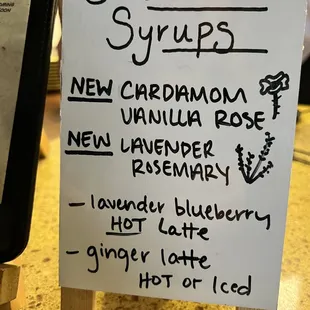 Syrups
NEW CARDAMOM
VANILLA ROSE
NEW LAVENDER
ROSEMARY
- lavender blueberry
HOT Latte
- ginger latte
HOT or Iced